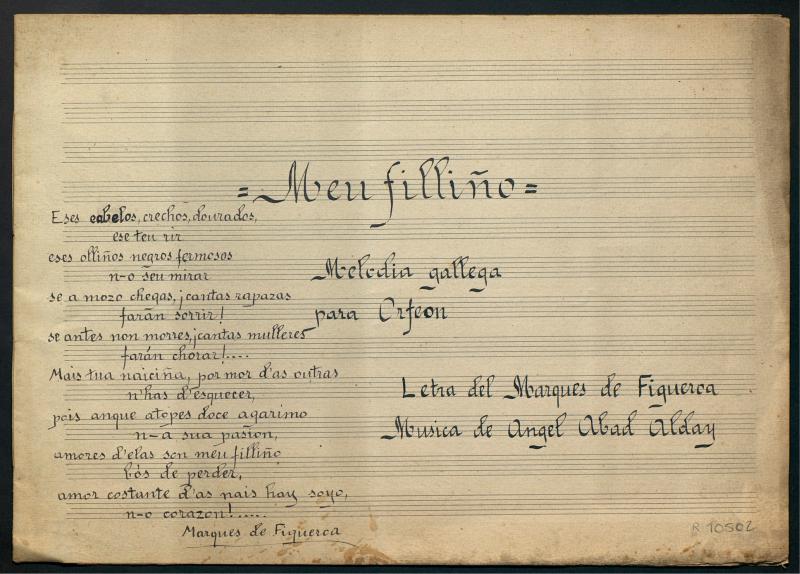 = Meu filliño =
Eses cabelos, crechos, dourados,
ese teu rir
eses olliños negros fermosos
n-o seu mirar
se a mozo chegas, ¡cantas rapazas
farán sorrir!
se antes non morres, ¡cantas mulleres
farán chorar!....
Mais tua naiciña, por mor d'as outras
n'has d'esquecer,
pois anque atopes doce agarimo
n-a sua pasion,
amores d'elas son meu filliño
bós de perder,
amor costante d'as nais hay soyo,
n-o corazon!.....
Marques de Figueroa
Melodia gallega
para Orfeon
Letra del Marques de Figueroa
Musica de Angel Abad Alday
R 10502